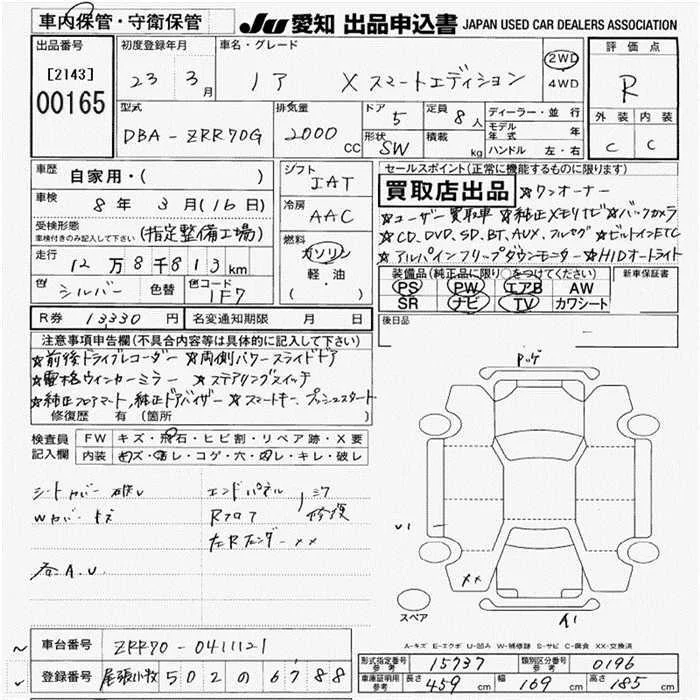 車内保管・守衛保管 JU 愛知 出品申込書 JAPAN USED CAR DEALERS ASSOCIATION
出品番号 初度登録年月 車名・グレード 評価点
[2143] 23年3月 ノア X スマートエディション 2WD・4WD R
00165
型式 排気量 ドア 定員 ディーラー・並行 外装 内装
DBA-ZRR70G 2000cc 5 8人 モデル年式 年 C C
形状 SW 積載 kg ハンドル 左・右
車歴 自家用・( ) シフト IAT セールスポイント(正常に機能するものに限ります)
車検 8年3月(16日) 冷房 AAC 買取店出品 ☆ワンオーナー
受検形態 (指定整備工場) ☆ユーザー買取車 ☆純正メモリナビ ☆バックカメラ
車検付きのみ記入して下さい 燃料 ガソリン ☆CD、DVD、SD、BT、AUX、フルセグ ☆ビルトインETC
走行 12万8千813km 軽油 ( ) ☆アルパインフリップダウンモニター ☆HIDオートライト
色 シルバー 色替 色コード 1F7 装備品(純正品に限り○をつけてください) 新車保証書
PS PW エアB AW
SR ナビ TV カワシート
R券 13330円 名変通知期限 月 日 後日品
注意事項申告欄(不具合内容等は具体的に記入して下さい)
☆前後ドライブレコーダー ☆両側パワースライドドア
☆電格ウインカーミラー ☆ステアリングスイッチ
☆純正フロアマット、純正ドアバイザー ☆スマートキー、プッシュスタート
修復歴 有 (箇所 )
検査員記入欄 FW キズ・飛石・ヒビ割・リペア跡・X要
内装 キズ・汚レ・コゲ・穴・凹レ・キレ・破レ
シートカバー破レ エンドパネル
Wカバーキズ Rフロア 修復
左Rフェンダー XX
A.U.
U1
XX
スペア
A-キズ E-エクボ U-凹み W-補修跡 S-サビ C-腐食 XX-交換済
車台番号 ZRR70-0411121
登録番号 尾張小牧 502 の 6788
形式指定番号 参考 15737 類別区分番号 参考 0196
車庫証明用 参考 長さ 459cm 幅 169cm 高さ 185cm